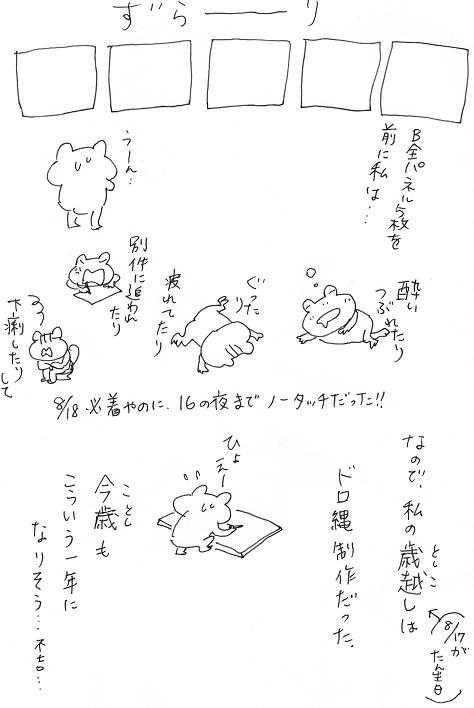 ずらーーーり
B全パネル5枚を
前に私は…
うーん…
酔い
つぶれたり
ぐったり
疲れてたり
別件に追われ
たり
下痢したり
して
8/18必着やのに、16の夜までノータッチだった!!
なので、私の歳越しは
としこ
8/17が
たん生日
ドロ縄制作だった。
ひょえー
今歳も
ことし
こういう一年に
なりそう…不吉…